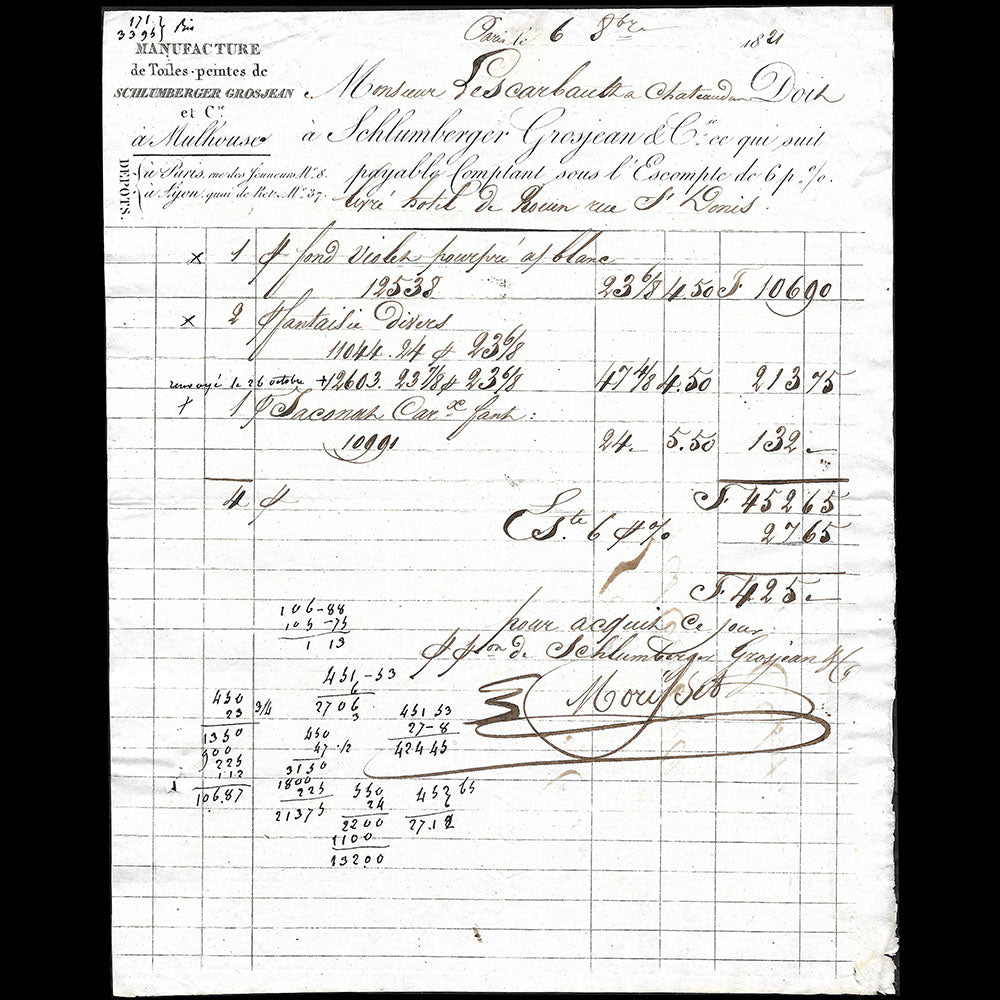 171
3395 } Bis
MANUFACTURE
de Toiles-peintes de
SCHLUMBERGER GROSJEAN
et C.ie
à Mulhouse
DEPOTS.
à Paris, rue des Jeuneurs N.º 8.
à Lyon, quai de Retz N.º 37.
Paris le 6 8bre 1821
Monsieur Lescarbault a Chateaudun Doit
à Schlumberger Grosjean & C.ie ce qui suit
payable Comptant sous l'Escompte de 6 p.%.
livré hotel de Rouen rue St Denis.
x 1 p fond violet pourpré a/ blanc
12538 23 6/8 4.50 F. 10690
x 2 p fantaisie Divers
11044. 24 p 23 6/8
renvoyé le 26 octobre +12603. 23 7/8 p 23 6/8 47 4/8 4.50 21375
+ 1 p Jaconat Car.x fant:
10991 24. 5.50 132.-
4 p F. 45265
Es.te 6 p % 2765
F. 425.-
pour acquit ce jour
p pon de Schlumberger Grosjean & Co
106-88
105-75
1 13
451-53
6
2706
3
450
23 3/4
1350
900
225
112
106.87
450
47 1/2
3150
1800
225
21375
451 53
27-8
424 45
550
24
2200
1100
13200
452 65
27.12